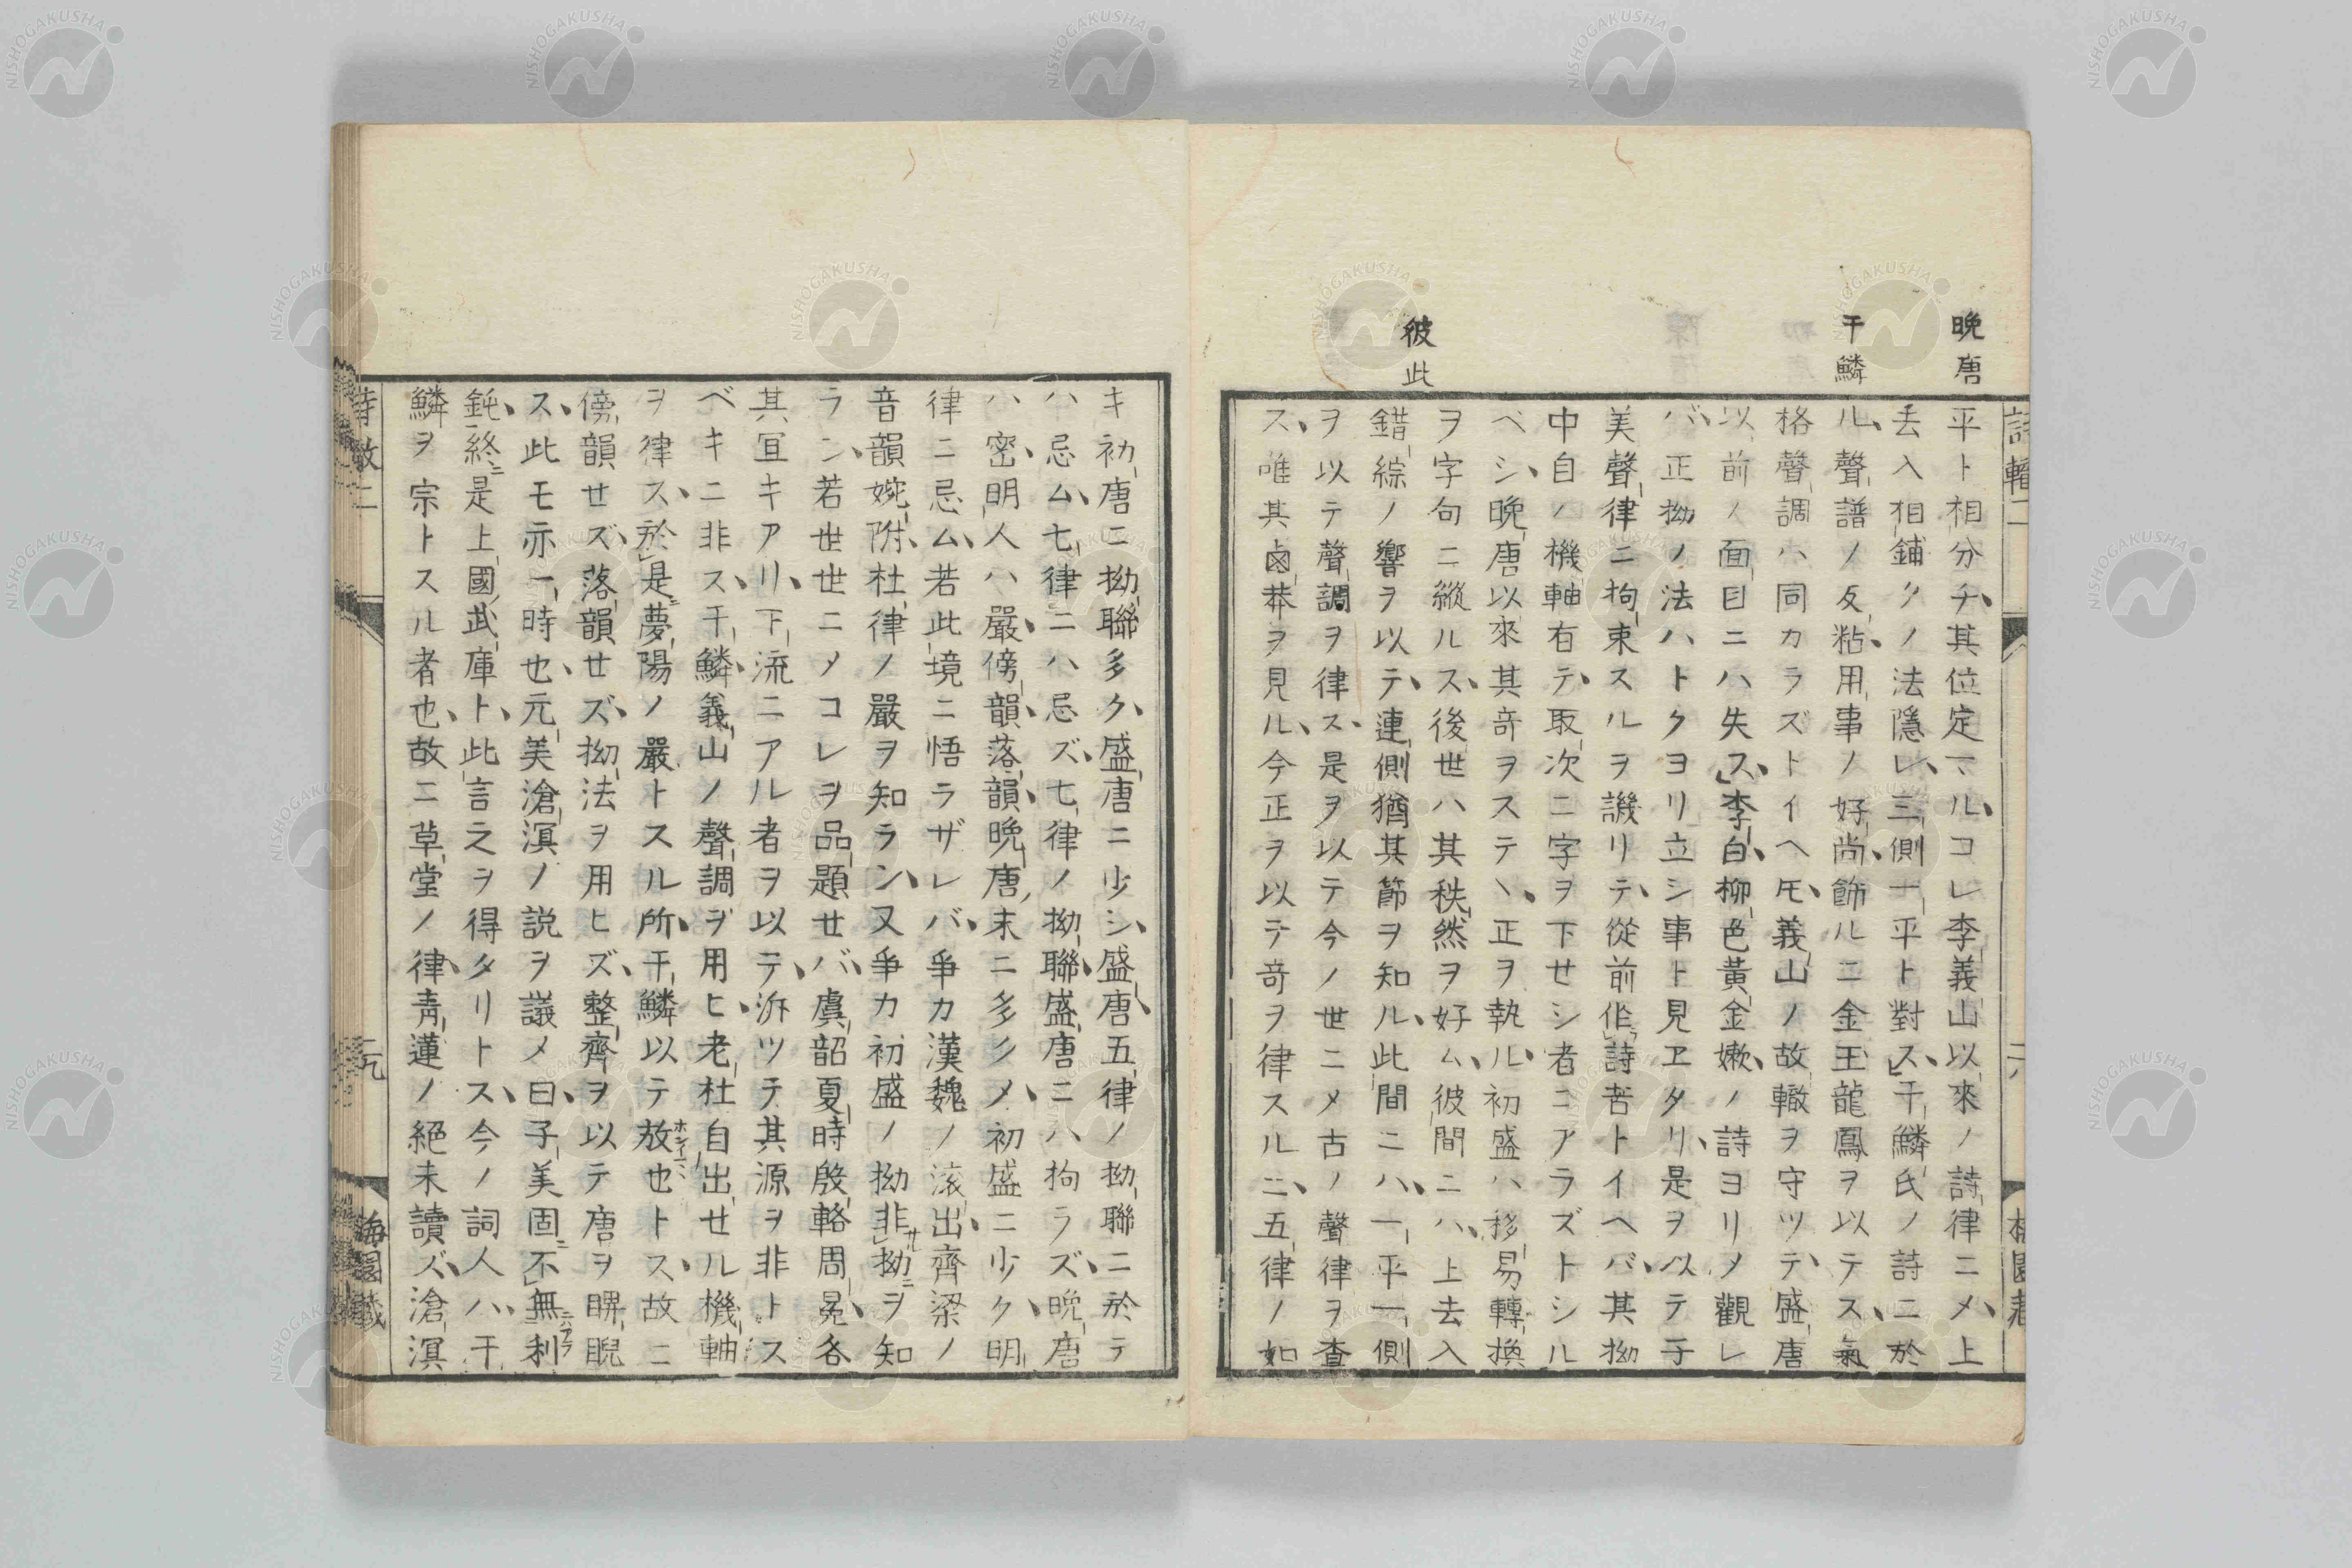 晩唐
干鱗
彼此
平ト相分チ、其位定マル、コレ李義山以來ノ詩律ニメ、上
去入相鋪クノ法隱レ、三側一平ト對ス、干鱗氏ノ詩ニ於
ル、聲譜ノ反粘、用事ノ好尚、飾ルニ金玉龍鳳ヲ以テス、氣
格聲調ハ同カラズトイヘ𪜈、義山ノ故轍ヲ守ツテ、盛唐
以前ノ面目ニハ失ス、李白柳色黃金嫩ノ詩ヨリメ觀レ
バ、正拗ノ法ハトクヨリ立シ事ト見ヱタリ、是ヲ以テ子
美聲律ニ拘束スルヲ譏リテ、從前作詩苦トイヘバ、其拗
中自ノ機軸有テ、取次ニ字ヲ下セシ者ニアラズトシル
ベシ、晩唐以來其奇ヲステヽ、正ヲ執ル、初盛ハ移易轉換
ヲ字句ニ縱ルス、後世ハ其秩然ヲ好ム、彼間ニハ、上去入
錯綜ノ響ヲ以テ、連側猶其節ヲ知ル、此間ニハ、一平一側
ヲ以テ聲調ヲ律ス、是ヲ以テ今ノ世ニメ古ノ聲律ヲ査
ス、唯其鹵莽ヲ見ル、今正ヲ以テ奇ヲ律スルニ、五律ノ如
キ初唐ニ拗聯多ク、盛唐ニ少シ、盛唐五律ノ拗聯ニ於テ
ハ忌ム、七律ニハ忌ズ、七律ノ拗聯、盛唐ニハ拘ラズ、晩唐
ハ密、明人ハ嚴、傍韻、落韻、晩唐末ニ多クメ、初盛ニ少ク、明
律ニ忌ム、若此境ニ悟ラザレバ、爭カ漢魏ノ滚出、齊梁ノ
音韻婉附、杜律ノ嚴ヲ知ラン、又爭カ初盛ノ拗非拗ヲ知
ラン、若世世ニメコレヲ品題セバ、虞韶夏時殷輅周冕、各
其宜キアリ、下流ニアル者ヲ以テ、泝ツテ其源ヲ非トス
ベキニ非ス、干鱗、義山ノ聲調ヲ用ヒ、老杜自出セル機軸
ヲ律ス、於是夢陽ノ嚴トスル所、干鱗以テ放也トス、故ニ
傍韻セズ、落韻セズ、拗法ヲ用ヒズ、整齊ヲ以テ唐ヲ睥睨
ス、此モ亦一時也、元美滄溟ノ説ヲ議メ曰、子美固不無利
鈍、終是上國武庫ト、此言之ヲ得タリトス、今ノ詞人ハ、干
鱗ヲ宗トスル者也、故ニ草堂ノ律、靑蓮ノ絕未讀ズ、滄溟